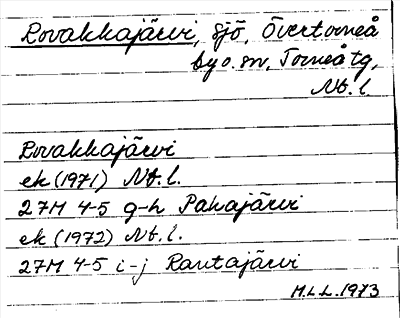 Rovakkajärvi, sjö, Övertorneå
by o. sn, Torneå tg,
Nb. l.
Rovakkajärvi
ek (1971) Nb. l.
27M 4-5 g-h Pakajärvi
ek (1972) Nb. l.
27M 4-5 i-j Rantajärvi
M.L.L. 1973